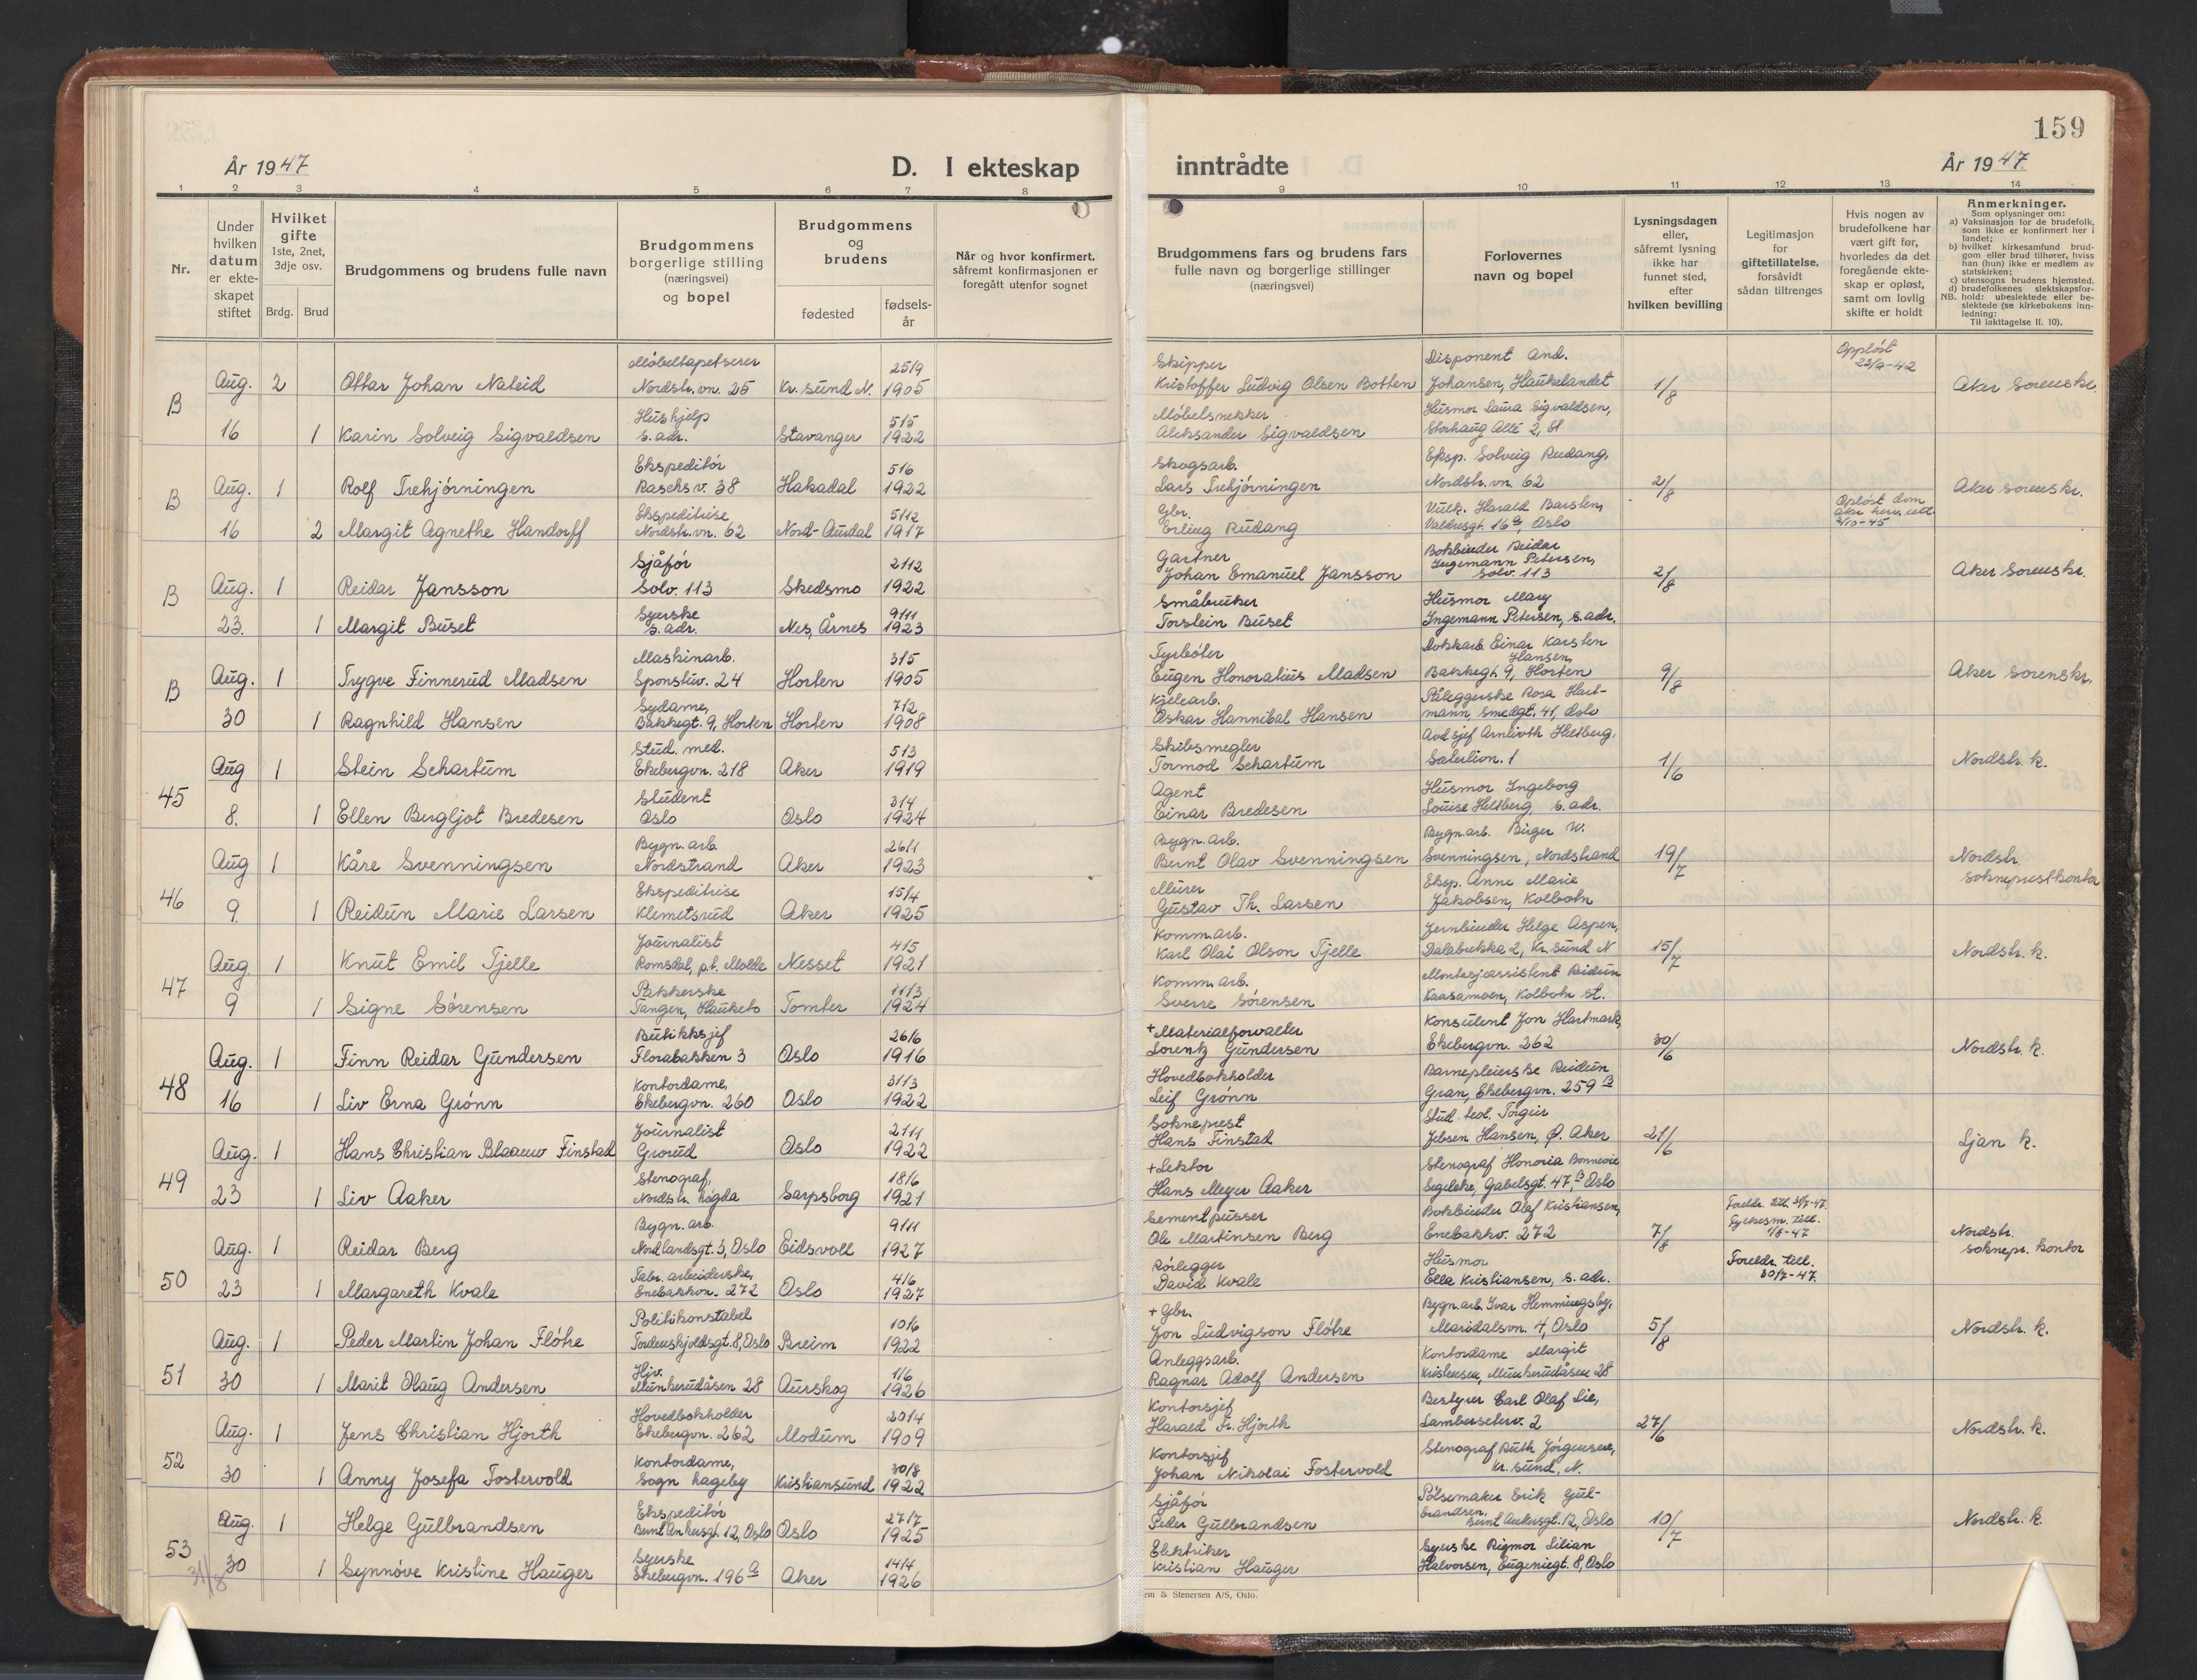 159
År 1947
D. I ekteskap
inntrådte
År 1947
1 2 3 4 5 6 7 8 9 10 11 12 13 14
Nr.
Under hvilken datum er ekte- skapet stiftet
Hvilket gifte 1ste, 2net, 3dje osv.
Brdg. Brud
Brudgommens og brudens fulle navn
Brudgommens borgerlige stilling (næringsvei) og bopel
Brudgommens og brudens
fødested
fødsels- år
Når og hvor konfirmert, såfremt konfirmasjonen er foregått utenfor sognet
Brudgommens fars og brudens fars fulle navn og borgerlige stillinger (næringsvei)
Forlovernes navn og bopel
Lysningsdagen eller, såfremt lysning ikke har funnet sted, efter hvilken bevilling
Legitimasjon for giftetillatelse, forsåvidt sådan tiltrenges
Hvis nogen av brudefolkene har vært gift før, hvorledes da det foregående ekte- skap er opløst, samt om lovlig skifte er holdt
Anmerkninger.
Som oplysninger om:
a) Vaksinasjon for de brudefolk, som ikke er konfirmert her i landet;
b) hvilket kirkesamfund brud- gom eller brud tilhører, hviss han (hun) ikke er medlem av statskirken;
c) utensogns brudens hjemsted.
d) brudefolkenes slektskapsfor- hold: ubeslektede eller be- slektede (se kirkebokens inn- ledning:
NB.
Til iakttagelse II. 10).
Møbeltapetserer 25/9 Skipper Disponent And. Oppløst
B Aug. 2 Ottar Johan Nateid Nordstr.vn. 25 Kr.sund N. 1905 Kristoffer Ludvig Olsen Botten Johansen, Haukelandet 1/8 Aker Sorenskr.
Hushjelp 5/5 Møbelsnekker Husmor Laura Sigvaldsen,
16 1 Karin Solveig Sigvaldsen s. adr. Stavanger 1922 Aleksander Sigvaldsen Storhaug Allé 2, St
Ekspeditør 5/6 Skogsarb. Eksp. Solveig Rudang,
B Aug. 1 Rolf Trehjørningen Raschs v. 38 Hakadal 1922 Lars Trehjørningen Nordstr.vn. 62 2/8 Aker Sorenskr.
Ekspeditrise 5/12 Gbr. Vulk. Harald Barsten, Opløst dom
16 2 Margit Agnethe Handorff Nordstr.vn. 62 Nord-Aurdal 1917 Erling Rudang Valdresgt. 16a, Oslo
Sjåfør 21/12 Gartner Bokbinder Reidar Ingemann Petersen,
B Aug. 1 Reidar Jansson Solv. 113 Skedsmo 1922 Johan Emanuel Jansson Solv. 113 2/8 Aker Sorenskr.
Syerske 9/11 Småbruker Husmor Mary
23. 1 Margit Buset s. adr. Nes, Årnes 1923 Torstein Buset Ingemann Petersen, s. adr.
Maskinarb. 3/5 Fyrbøter Dokkarb. Einar Karsten Hansen,
B Aug. 1 Trygve Finnerud Madsen Sponstuv. 24 Horten 1905 Eugen Honoratius Madsen Bakkegt. 9, Horten 9/8 Aker Sorenskr.
Sydame, 7/2 Kjelearb. Påleggerske Rosa Hart-
30 1 Ragnhild Hansen Bakkegt. 9, Horten Horten 1908 Oskar Hannibal Hansen mann, Smedgt. 41, Oslo
Stud. med. 5/3 Skibsmegler Avd sjef Arnlioth Heltberg,
45 Aug 1 Stein Schartum Ekebergvn. 218 Aker 1919 Tormod Schartum Sæterlivn. 1 1/6 Nordstr. k.
Student 3/4 Agent Husmor Ingeborg
8. 1 Ellen Bergljot Bredesen Oslo Oslo 1924 Einar Bredesen Louise Heltberg, s. adr.
Bygn. arb. 26/1 Bygn. arb. Bygn. arb. Birger W.
46 Aug 1 Kåre Svenningsen Nordstrand Aker 1923 Bernt Olav Svenningsen Svenningsen, Nordstrand 19/7 Nordstr. sokneprestkontor
Ekspeditrise 15/4 Murer Eksp. Anne Marie
9. 1 Reidun Marie Larsen Klemetsrud Aker 1925 Gustav Th. Larsen Jakobsen, Kolbotn
Journalist 4/5 Komm. arb. Jernbinder Helge Aspen,
47 Aug 1 Knut Emil Tjelle Romsdal, p.t. Molde Nesset 1921 Karl Olai Olson Tjelle Dalabrekka 2, Kr.sund N 15/7 Nordstr. k.
Pakkerske 11/3 Komm. arb. Montasjeassistent Reidun
9 1 Signe Sørensen Tangen, Hauketo Tomter 1924 Sverre Sørensen Kaasamoen, Kolbotn st.
Butikksjef 26/6 + Materialforvalter Konsulent Jon Hartmark,
48 Aug. 1 Finn Reidar Gundersen Florabakken 3 Oslo 1916 Lorentz Gundersen Ekebergvn. 262 30/6 Nordstr. k.
Kontordame, 31/3 Hovedbokholder Barnepleierske Reidun
16 1 Liv Erna Grønn Ekebergvn. 260 Oslo 1922 Leif Grønn Gran, Ekebergvn. 259 a
Journalist 21/1 Sokneprest Stud. teol. Torgeir
49 Aug. 1 Hans Christian Blaauw Finstad Grorud Oslo 1922 Hans Finstad Jebsen Hansen, Ø. Aker 21/6 Ljan k.
Stenograf, 18/6 + Lektor Stenograf Honoria Bonnevie
23 1 Liv Aaker Nordstr. høgda Sarpsborg 1921 Hans Meyer Aaker Segelcke, Gabelsgt. 47, b Oslo
Bygn. arb. 9/11 Sementpusser Bokbinder Olaf Kristiansen, Foreldr. till. 31/7-47. Fylkesm. till.
50 Aug. 1 Reidar Berg Nordlandsgt. 3, Oslo Eidsvoll 1927 Ole Martinsen Berg Enebakkv. 272 7/8 Nordstr. soknepr. kontor
Fabr. arbeiderske, 4/6 Rørlegger Husmor Foreldr. till.
23 1 Margareth Kvale Enebakkvn. 272 Oslo 1927 David Kvale Ella Kristiansen, s. adr. 30/7-47.
Politikonstabel 10/6 + Gbr. Bygn. arb. Ivar Hemmingsby,
51 Aug. 1 Peder Martin Johan Fløtre Tordenskjoldsgt. 8, Oslo Breim 1922 Jon Ludvigson Fløtre Maridalsvn. 4, Oslo 5/8 Nordstr. k.
Hjv. 1/6 Anleggsarb. Kontordame Margit
30 1 Marit Olaug Andersen Munkerudåsen 28 Aurskog 1926 Ragnar Adolf Andersen Kristensen, Munkerudåsen 28
Hovedbokholder 20/4 Kontorsjef Bestyrer Carl Olaf Lie,
52 Aug. 1 Jens Christian Hjorth Ekebergvn. 262 Modum 1909 Harald Fr. Hjorth Lambersetrv. 2 27/6 Nordstr. k.
Kontordame, 30/8 Kontorsjef Stenograf Ruth Jørgensen,
30 1 Anny Josefa Fostervold Sogn hageby Kristiansund 1922 Johan Nikolai Fostervold Kr. sund, N.
Ekspeditør 27/7 Sjåfør Pølsemaker Erik Gul-
53 Aug. 1 Helge Gulbrandsen Bernt Ankersgt. 12, Oslo Oslo 1925 Peder Gulbrandsen brandsen, Bernt Ankersgt. 12, Oslo 10/7 Nordstr. k.
Syerske 14/4 Elektriker Syerske Rigmor Lilian
31/8 30 1 Synnøve Kristine Hauger Ekebergvn. 196 a Aker 1926 Kristian Hauger Halvorsen, Eugeniegt. 8, Oslo
em & Stenersen A/S, Oslo.